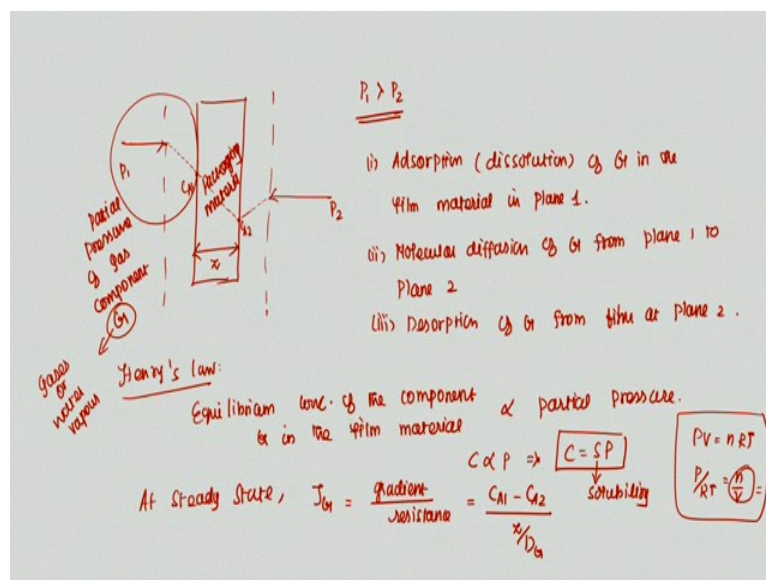 P1 > P2
P1
CA1
Packaging material
CA2
P2
z
Partial
pressure
of gas
component
G
gases
or
water
vapous
(i) Adsorption (dissolution) of G in the
film material in plane 1.
(ii) Molecular diffusion of G from plane 1 to
plane 2
(iii) Desorption of G from film at plane 2.
Henry's law:
Equilibrium conc. of the component ∝ partial pressure.
G in the film material
C ∝ P ⇒ C = SP
solubility
At steady state, JG = gradient / resistance = CA1 - CA2 / z/DG
PV = nRT
P/RT = n/V =